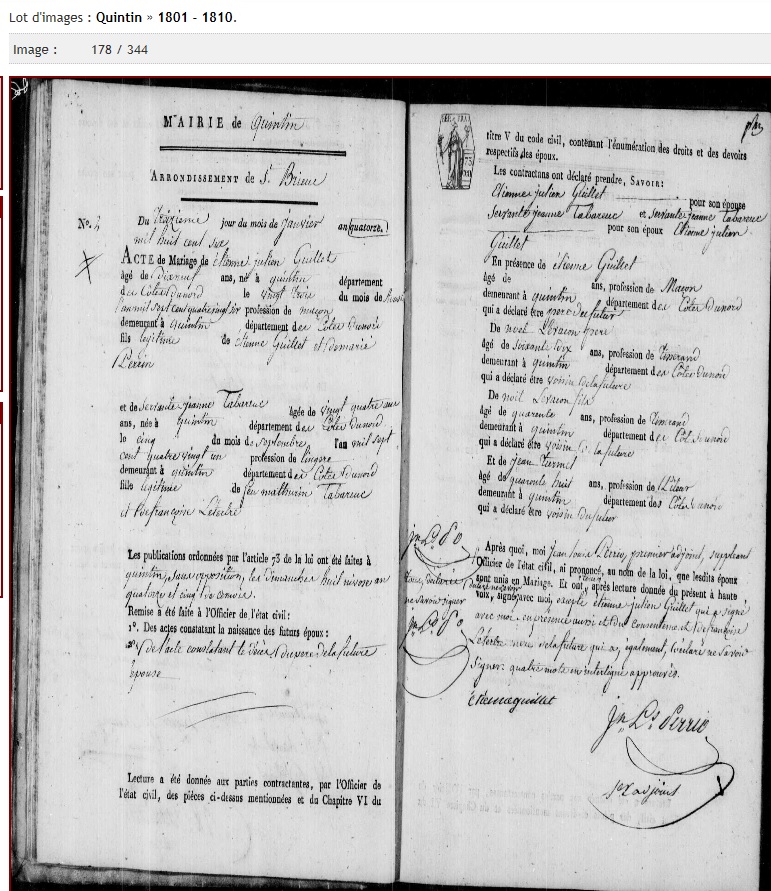 Lot d'images : Quintin » 1801 - 1810.
Image : 178 / 344
MAIRIE de quintin
ARRONDISSEMENT de St. Brieuc
N°. 2 Du treizieme jour du mois de janvier an quatorze.
mil huit cent six
ACTE de Mariage de étienne julien Guillet
âgé de Dixneuf ans, né à quintin département
des Côtes du nord le vingt trois du mois de
l'an mil sept cent quatre vingt six profession de maçon
demeurant à quintin département des Côtes Dunord
fils legitime de étienne Guillet et de marie
Perrin
et de Servante jeanne Tabareuc âgée de vingt quatre ans
ans, née à quintin département des Côtes Dunord
le cinq du mois de septembre l'an mil sept
cent quatre vingt un profession de lingere
demeurant à quintin département des Côtes Dunord
fille legitime de feu mathurin Tabareuc
et de françoise
Les publications ordonnées par l'article 73 de la loi ont été faites à
quintin, sans opposition, les dimanches huit nivose an
quatorze et cinq de janvier.
Remise a été faite à l'Officier de l'état civil :
1°. Des actes constatant la naissance des futurs époux :
2° de l'acte constatant le décès du pere de la future
épouse
Lecture a été donnée aux parties contractantes, par l'Officier de
l'état civil, des pièces ci-dessus mentionnées et du Chapitre VI du
titre V du code civil, contenant l'énumération des droits et des devoirs
respectifs des époux.
Les contractans ont déclaré prendre, SAVOIR:
Etienne julien Guillet pour son épouse
Servante jeanne Tabareuc et Servante jeanne Tabareuc
pour son époux Etienne julien
Guillet
En présence de étienne Guillet
âgé de ans, profession de Maçon
demeurant à quintin département des Côtes Dunord
qui a déclaré être pere du futur
De noel Levacon pere
âgé de soixante dix ans, profession de tisserand
demeurant à quintin département des Côtes Dunord
qui a déclaré être voisin de la future
De noel Levacon fils
âgé de quarente ans, profession de tisserand
demeurant à quintin département des Côtes Dunord
qui a déclaré être voisin de la future
Et de jean
âgé de quarante huit ans, profession de
demeurant à quintin département des Côtes Dunord
qui a déclaré être voisin du futur
Après quoi, moi jean Louis Perrio, premier adjoint, suppleant
l'Officier de l'état civil, ai prononcé, au nom de la loi, que lesdits époux
sont unis en Mariage. Et ont, après lecture donnée du présent à haute
voix, signé avec moi, excepté étienne julien Guillet qui a signé
avec moi, en presence aussi et du consentement de françoise
mere de la future qui a, également, déclaré ne savoir
signer. quatre mots en interligne approuvés.
ne savoir signer
etienne guillet
Jn. Ls. Perrio
1er adjoint